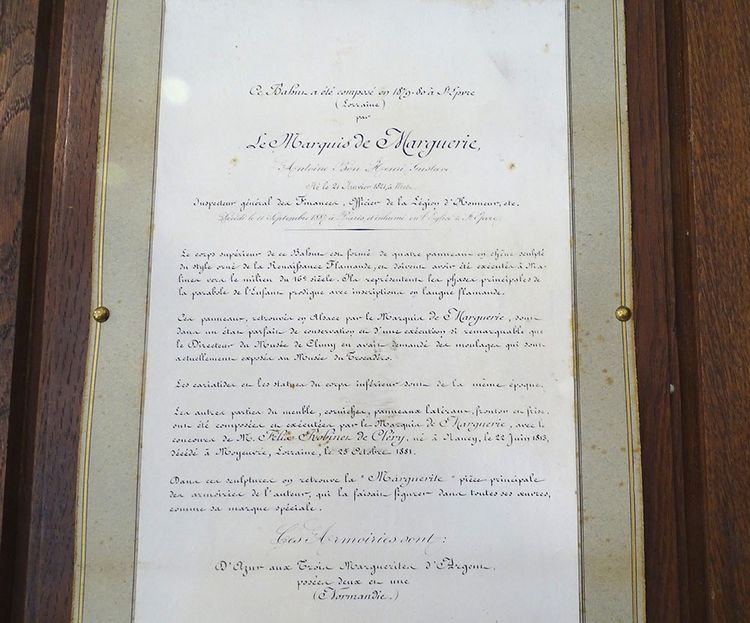 Ce Bahut a été composé en 1879-80 à St Epvre
(Lorraine)
par
Le Marquis de Marguerie,
Antoine Bon Henri Gustave
Né le 21 Janvier 1821, à Metz
Inspecteur général des Finances, Officier de la Légion d'Honneur, etc.
Décédé le 11 Septembre 1887 à Paris et inhumé en l'Eglise de St Epvre.
Le corps supérieur de ce Bahut est formé de quatre panneaux en chêne sculpté
du style orné de la Renaissance Flamande, et doivent avoir été exécutés à Ma-
lines vers le milieu du 16e siècle. Ils représentent les phases principales de
la parabole de l'Enfant prodigue avec inscriptions en langue flamande.
Ces panneaux, retrouvés en Alsace par le Marquis de Marguerie, sont
dans un état parfait de conservation et d'une exécution si remarquable que
le Directeur du Musée de Cluny en avait demandé des moulages qui sont
actuellement exposés au Musée du Trocadéro.
Les cariatides et les statues du corps inférieur sont de la même époque.
Les autres parties du meuble, corniches, panneaux latéraux, fronton et frise,
ont été composées et exécutées par le Marquis de Marguerie, avec le
concours de M. Félix Robinet de Cléry, né à Nancy, le 22 Juin 1813,
décédé à Moyeuvre, Lorraine, le 25 Octobre 1881.
Dans ces sculptures on retrouve la "Marguerite" pièce principale
des armoiries de l'auteur, qui la faisait figurer dans toutes ses œuvres,
comme sa marque spéciale.
Ces Armoiries sont:
D'Azur aux Trois Marguerites d'Argent,
posées deux et une
(Normandie.)